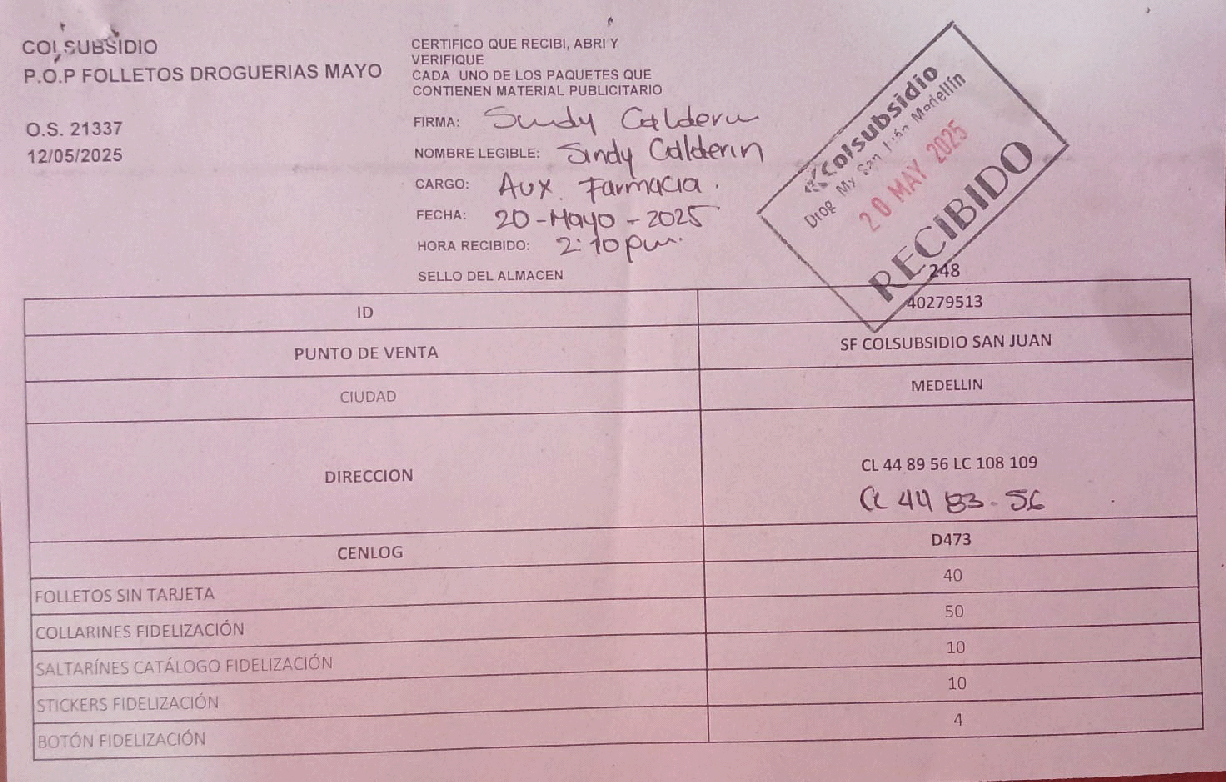 COLSUBSIDIO
P.O.P FOLLETOS DROGUERIAS MAYO
O.S. 21337
12/05/2025
CERTIFICO QUE RECIBI, ABRI Y
VERIFIQUE
CADA UNO DE LOS PAQUETES QUE
CONTIENEN MATERIAL PUBLICITARIO
FIRMA: Sindy Calderin
NOMBRE LEGIBLE: Sindy Calderin
CARGO: Aux. Farmacia.
FECHA: 20-Mayo-2025
HORA RECIBIDO: 2:10 pm.
SELLO DEL ALMACEN
Colsubsidio
Drog My San Juan Medellín
20 MAY 2025
RECIBIDO
248
ID 40279513
PUNTO DE VENTA SF COLSUBSIDIO SAN JUAN
CIUDAD MEDELLIN
DIRECCION CL 44 89 56 LC 108 109
CL 44 83-56
CENLOG D473
FOLLETOS SIN TARJETA 40
COLLARINES FIDELIZACIÓN 50
SALTARÍNES CATÁLOGO FIDELIZACIÓN 10
STICKERS FIDELIZACIÓN 10
BOTÓN FIDELIZACIÓN 4